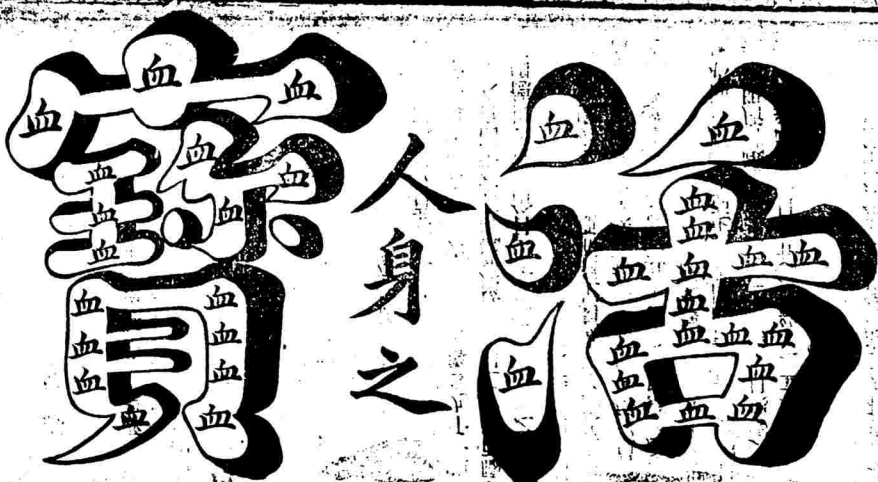 活
血 血 血 血 血 血 血 血 血 血 血 血 血 血 血 血 血 血 血 血
人身之
寶
血 血 血 血 血 血 血 血 血 血 血 血 血 血 血 血 血